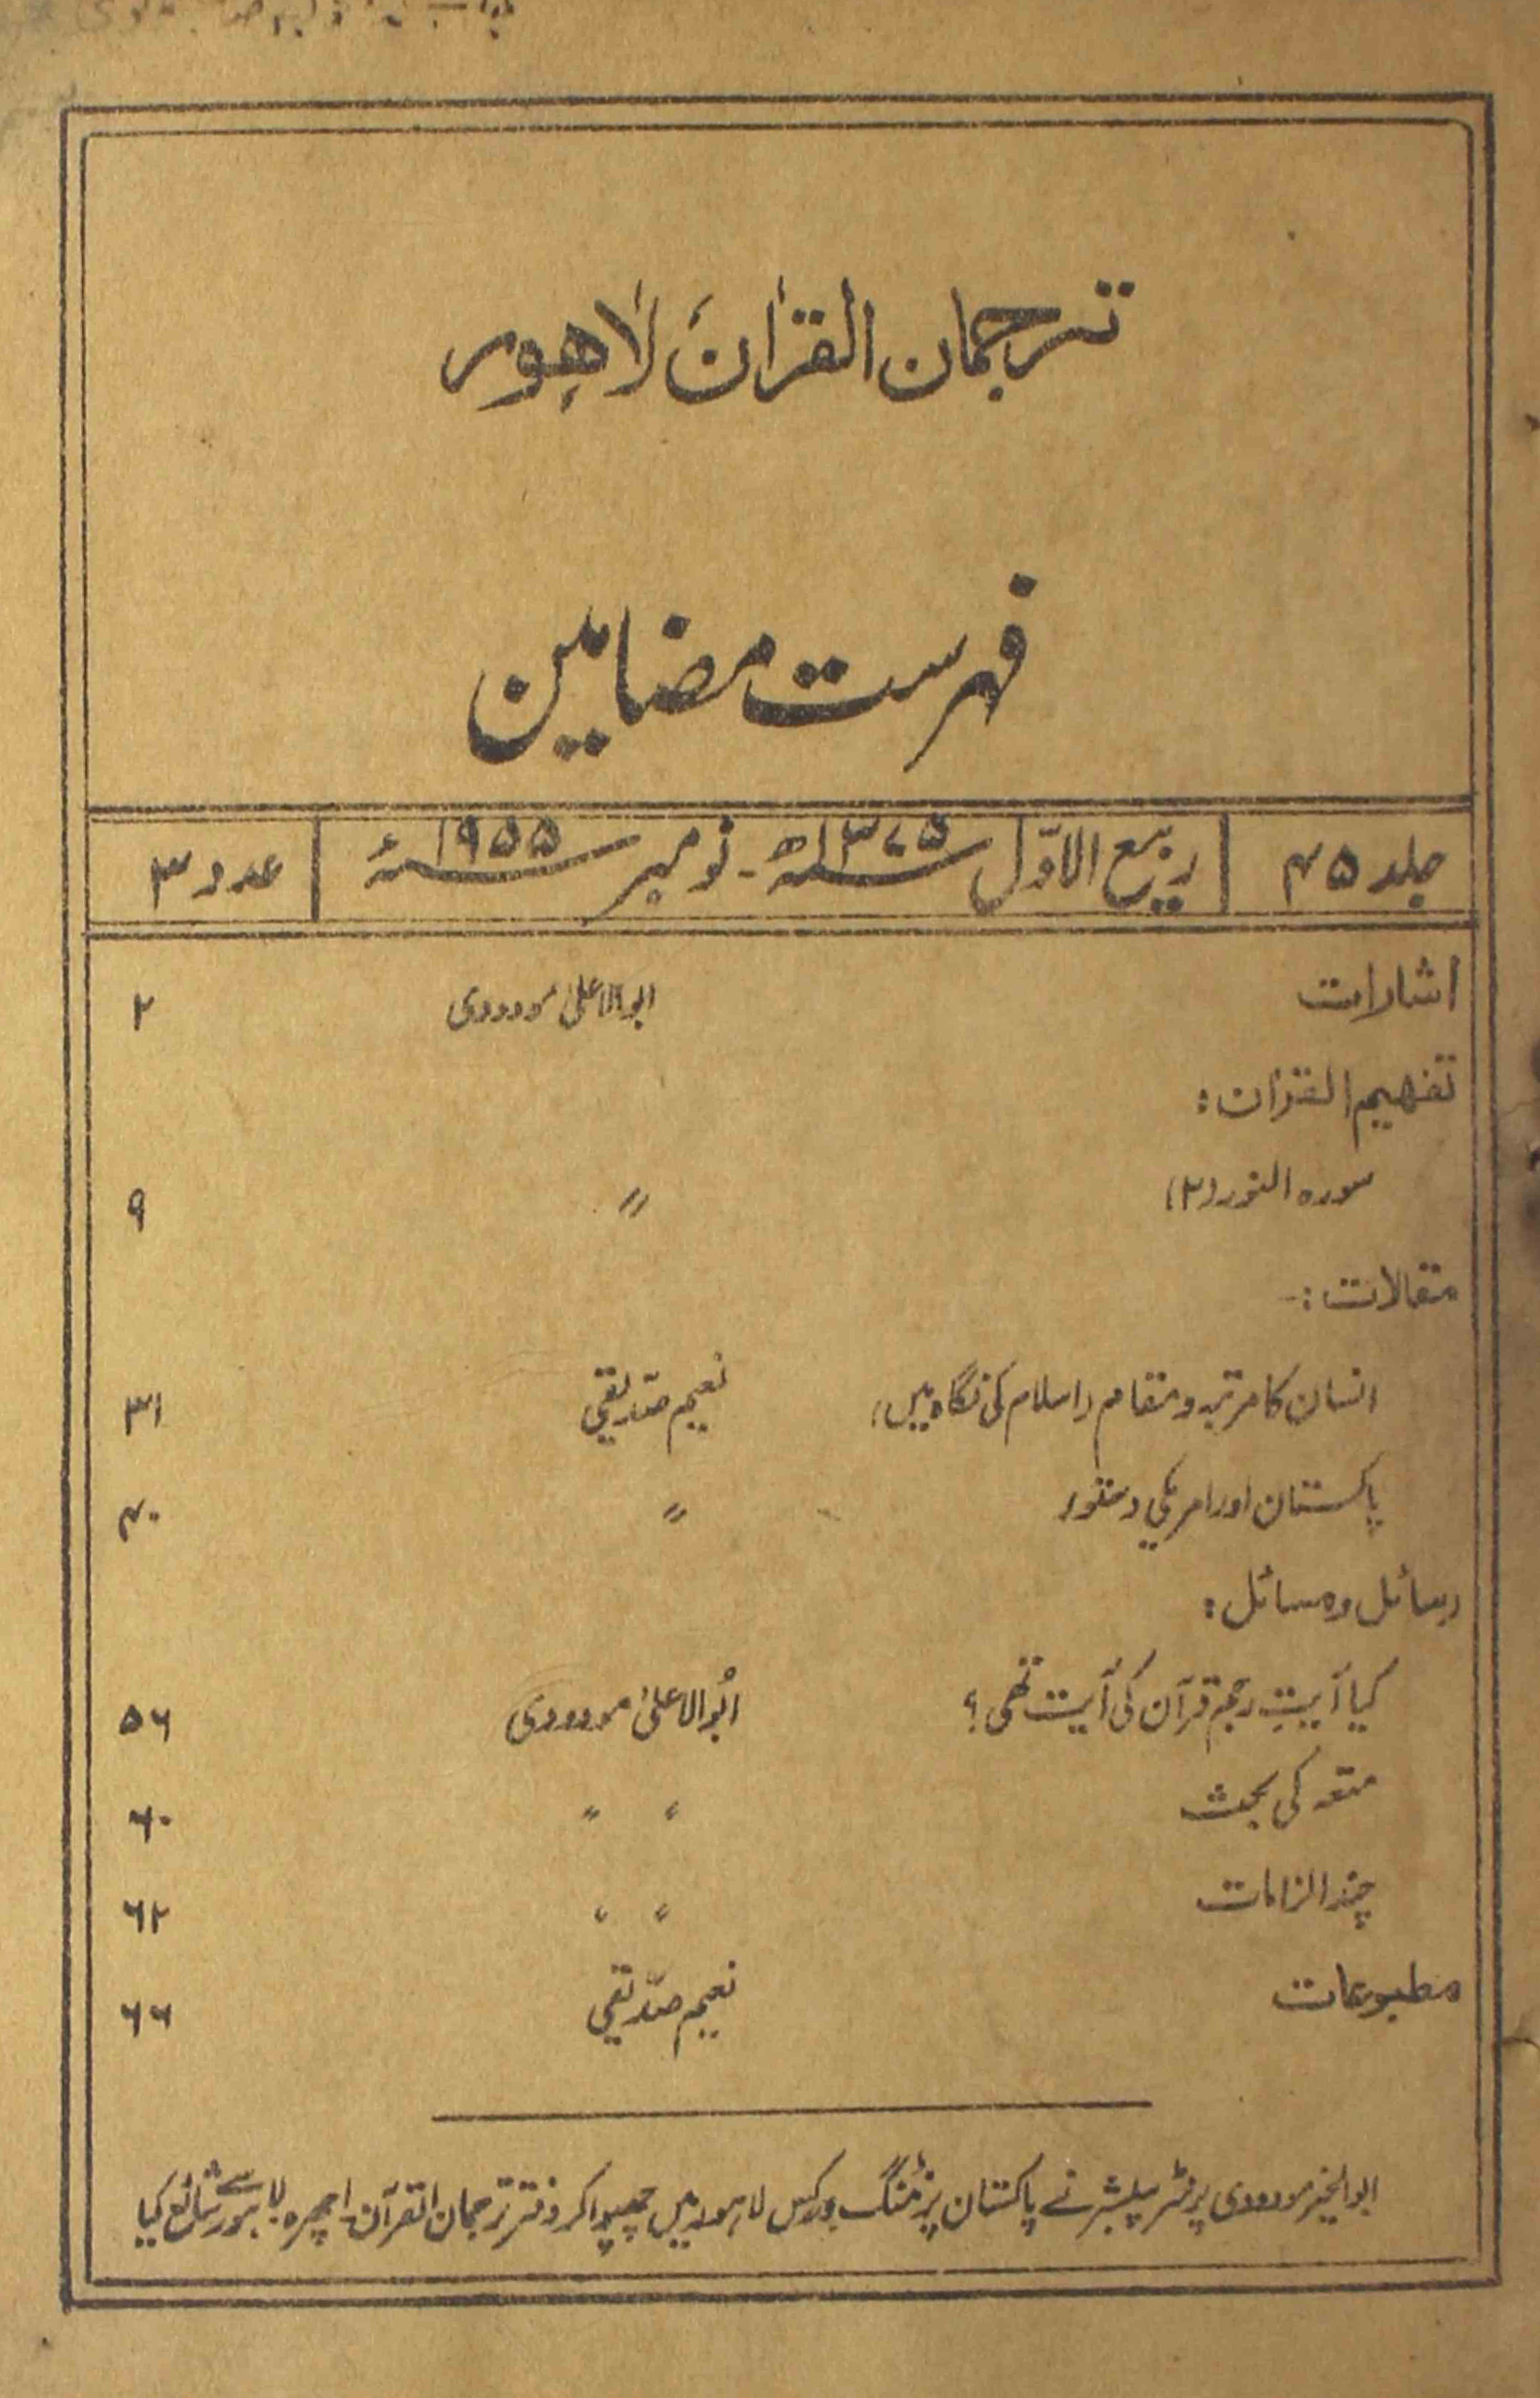 ترجمان القرآن لاہور
فہرست مضامین
جلد ۴۵ ربیع الاوّل ۱۳۷۵ھ - نومبر ۱۹۵۵ء عدد ۳
اشارات ابوالاعلیٰ مودودی ۲
تفہیم القرآن:
سورہ النور (۲) " ۹
مقالات:-
انسان کا مرتبہ و مقام (اسلام کی نگاہ میں) نعیم صدّیقی ۳۱
پاکستان اور امریکی دستور " ۴۰
رسائل و مسائل:
کیا آیتِ رجم قرآن کی آیت تھی؟ ابُوالاعلیٰ مودودی ۵۶
متعہ کی بحث " " ۶۰
چند الزامات " " ۶۲
مطبوعات نعیم صدّیقی ۶۶
ابوالخیر مودودی پرنٹر پبلشر نے پاکستان پرنٹنگ ورکس لاہور میں چھپوا کر دفتر ترجمان القرآن، اچھرہ لاہور سے شائع کیا